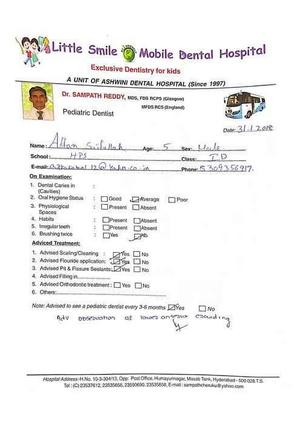 Little Smile Mobile Dental Hospital
Exclusive Dentistry for kids
A UNIT OF ASHWINI DENTAL HOSPITAL (Since 1997)
Dr. SAMPATH REDDY, MDS, FDS RCPS (Glasgow)
MFDS RCS (England)
Pediatric Dentist
Date: 31/1/2018
Name: Age: 5 Sex: Male
School: HPS Class: I D
E-mail: Phone:
On Examination:
1. Dental Caries in (Cavities)
2. Oral Hygiene Status : Good Average Poor
3. Physiological Spaces : Present Absent
4. Habits : Present Absent
5. Irregular teeth : Present Absent
6. Brushing twice : Yes No
Adviced Treatment:
1. Advised Scaling/Cleaning : Yes No
2. Advised Flouride application: Yes No
3. Advised Pit & Fissure Sealants: Yes No
4. Advised Filling in
5. Advised Orthodontic treatment : Yes No
6. Others:
Note: Advised to see a pediatric dentist every 3-6 months Yes No
Adv observation of lower anterior crowding
Hospital Address: H.No. 10-3-304/13, Opp: Post Office, Humayunnagar, Masab Tank, Hyderabad - 500 028.T.S.